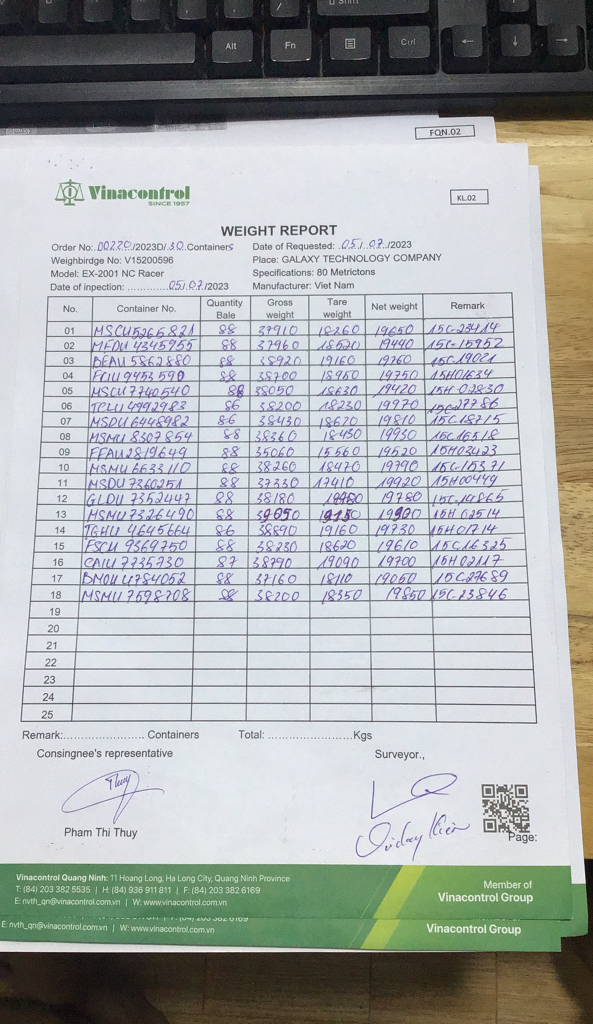 Shift
Alt
Fn
Ctrl
FQN.02
Vinacontrol
SINCE 1957
KL.02
WEIGHT REPORT
Order No: 00220/2023D/30 Containers Date of Requested: 05/07/2023
Weighbirdge No: V15200596 Place: GALAXY TECHNOLOGY COMPANY
Model: EX-2001 NC Racer Specifications: 80 Metrictons
Date of inpection: ............05/07/2023 Manufacturer: Viet Nam
No. Container No. Quantity Bale Gross weight Tare weight Net weight Remark
01 MSCU5266821 88 37910 18260 19650 15C-23414
02 MEDU4345955 88 37960 18520 19440 15C-15952
03 BEAU5862880 88 38920 19160 19760 15C19021
04 FCIU9453590 88 38700 18950 19750 15H01634
05 MSCU7740540 88 38050 18630 19420 15H-02830
06 TCLU4992983 86 38200 18230 19970 15C27786
07 MSDU6448982 86 38430 18620 19810 15C18715
08 MSMU8307854 88 38360 18430 19930 15C16518
09 FFAU2819649 88 35060 15560 19520 15H03423
10 MSMU6633110 88 38260 18470 19790 15C-15371
11 MSDU7360251 88 37330 17410 19920 15H00449
12 GLDU7352447 88 38180 19760 15C-14865
13 MSMU7326490 88 39050 15H02514
14 TGHU4645664 86 38890 19160 19730 15H01714
15 FSCU9369750 88 38230 18620 19610 15C16325
16 CAIU7735730 87 38790 19090 19700 15H02117
17 BMOU4784052 88 37160 18110 19050 15C27689
18 MSMU7598708 88 38200 18350 19850 15C-23846
19
20
21
22
23
24
25
Remark:........................ Containers Total: ........................Kgs
Consingnee's representative Surveyor.,
Thuy
Pham Thi Thuy
Page:
Vinacontrol Quang Ninh: 11 Hoang Long, Ha Long City, Quang Ninh Province
T: (84) 203 382 5535 | H: (84) 936 911 811 | F: (84) 203 382 6169
E: nvth_qn@vinacontrol.com.vn | W: www.vinacontrol.com.vn
Member of
Vinacontrol Group
E: nvth_qn@vinacontrol.com.vn | W: www.vinacontrol.com.vn
Vinacontrol Group